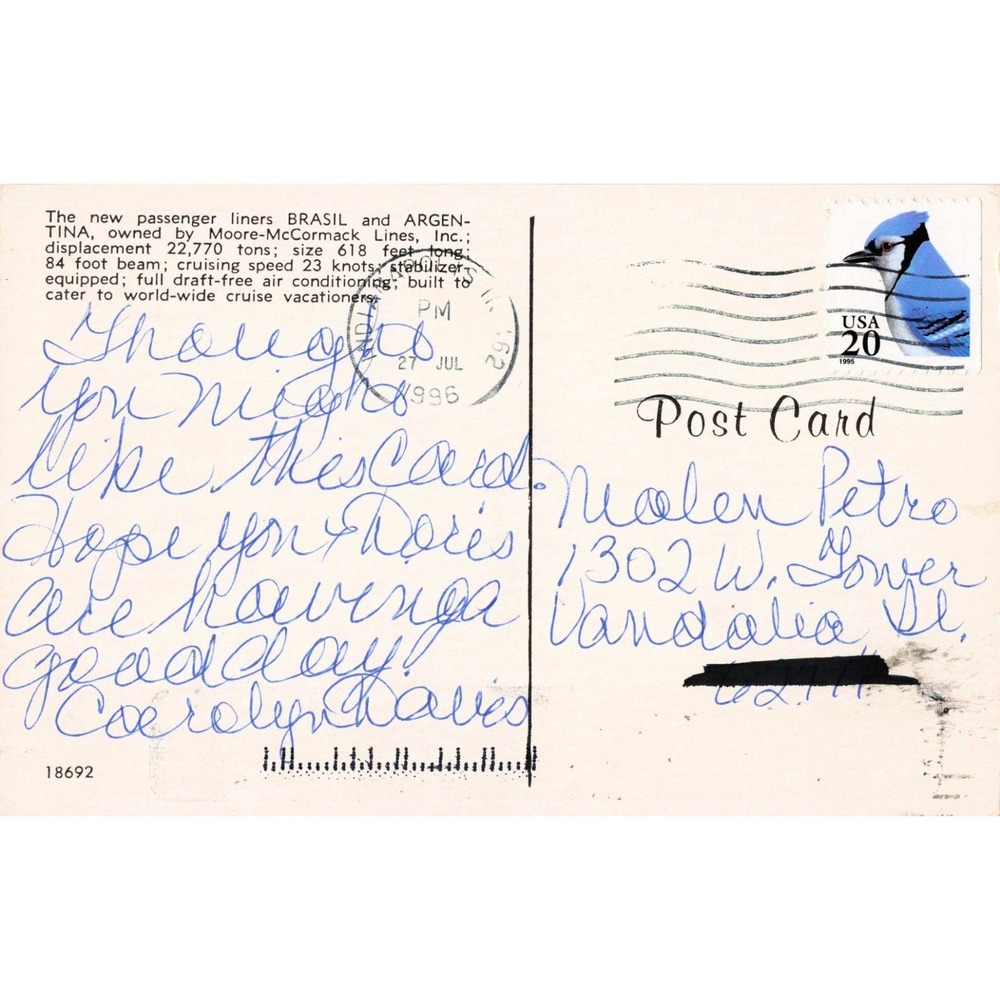 The new passenger liners BRASIL and ARGEN-
TINA, owned by Moore-McCormack Lines, Inc.;
displacement 22,770 tons; size 618 feet long;
84 foot beam; cruising speed 23 knots; stabilizer-
equipped; full draft-free air conditioning; built to
cater to world-wide cruise vacationers.
PM
27 JUL
1996
USA
20
1995
Post Card
Thought
you might
like this Card.
Hope you & Doris
are having a
good day!
Carolyn Davis
Petro
1302 W. Tower
Vandalia Il.
18692